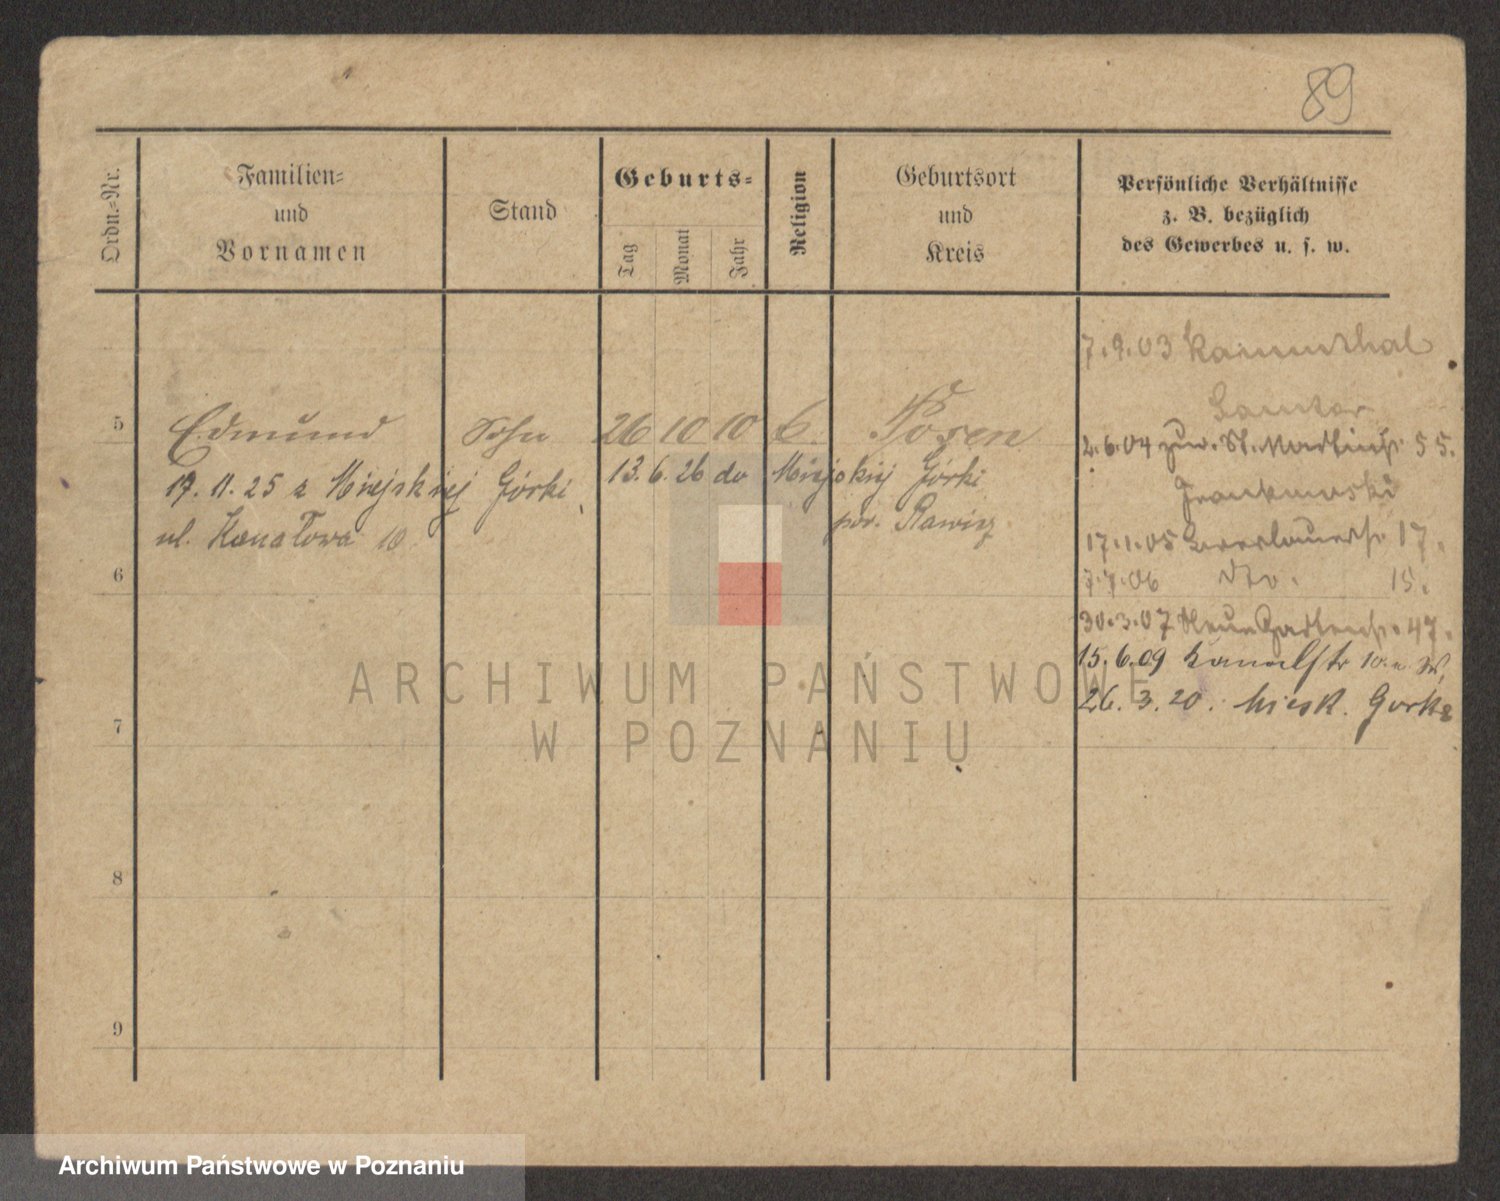 89
Ordn.=Nr.
Familien=
und
Vornamen
Stand
Geburts=
Tag
Monat
Jahr
Religion
Geburtsort
und
Kreis
Persönliche Verhältnisse
z. B. bezüglich
des Gewerbes u. s. w.
7.9.03
Samter
5 Edmund Sohn 26 10 10 C. Posen
2.6.04 zur. St. Martinstr. 55.
17. 11. 25 z Miejskiej Górki 13. 6. 26 do Miejskiej Górki
ul. Kanałowa 10 pow. Rawicz
17.1.05 17.
6
7.7.06 dto. 15.
30.3.07 Neue Gartenstr. 47.
15.6.09 Kanalstr 10
26.3.20. Miesk. Gorka
7
8
9
ARCHIWUM PAŃSTWOWE
W POZNANIU
Archiwum Państwowe w Poznaniu